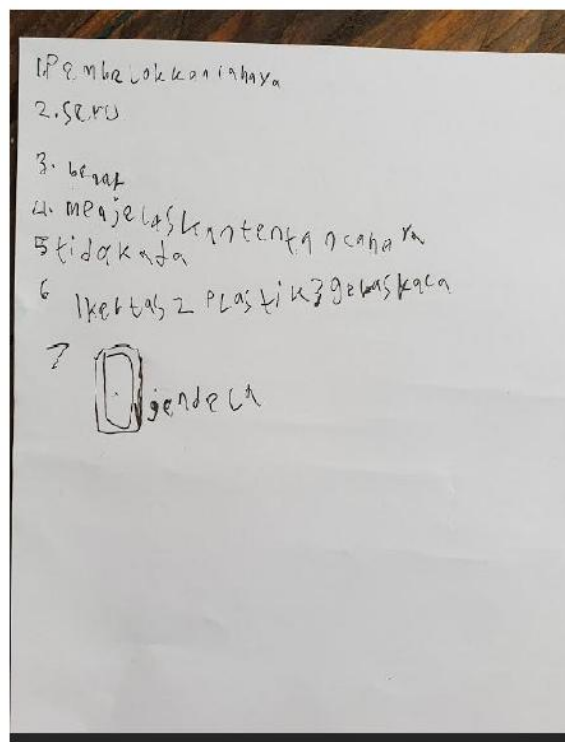 1.Pembelokkan cahaya
2.seru
3. benar
4. menjelaskan tentan cahaya
5 tidak ada
6 1kertas 2 Plastik 3 gelas kaca
7 jendela